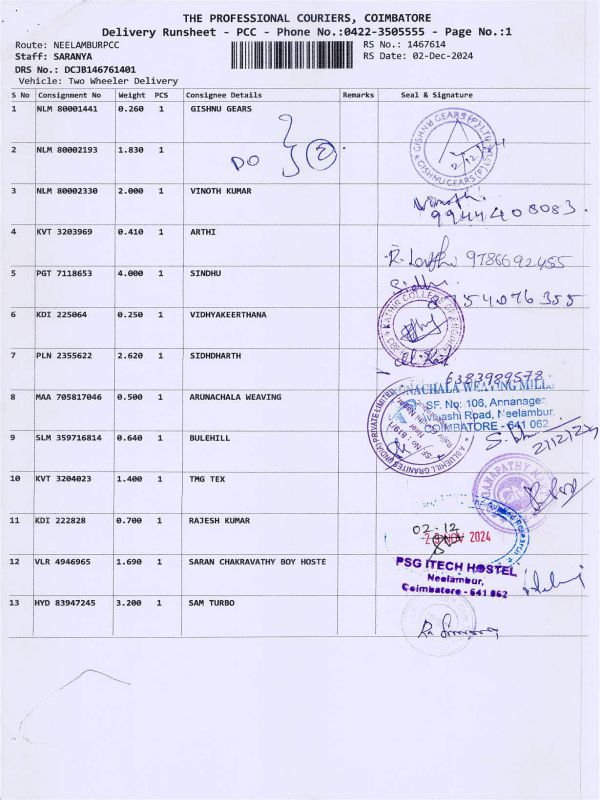 THE PROFESSIONAL COURIERS, COIMBATORE
Delivery Runsheet - PCC - Phone No.:0422-3505555 - Page No.:1
Route: NEELAMBURPCC
RS No.: 1467614
Staff: SARANYA
RS Date: 02-Dec-2024
DRS No.: DCJB146761401
Vehicle: Two Wheeler Delivery
S No Consignment No Weight PCS Consignee Details Remarks Seal & Signature
1 NLM 80001441 0.260 1 GISHNU GEARS
GISHNU GEARS (P) LTD
2 NLM 80002193 1.830 1 DO 2
3 NLM 80002330 2.000 1 VINOTH KUMAR
9944408083.
4 KVT 3203969 0.410 1 ARTHI
9786692455
5 PGT 7118653 4.000 1 SINDHU
54076355
6 KDI 225064 0.250 1 VIDHYAKEERTHANA
7 PLN 2355622 2.620 1 SIDHDHARTH
6383989578.
8 MAA 705817046 0.500 1 ARUNACHALA WEAVING
NACHALA WEAVING MILLS
SF. No: 106, Annanagar,
Avinashi Road, Neelambur,
COIMBATORE - 641 062
9 SLM 359716814 0.640 1 BULEHILL
BLUEHILL GRANITES (INDIA) PRIVATE LIMITED
2/12/24
10 KVT 3204023 1.400 1 TMG TEX
11 KDI 222828 0.700 1 RAJESH KUMAR
02.12
NOV 2024
12 VLR 4946965 1.690 1 SARAN CHAKRAVATHY BOY HOSTE
PSG ITECH HOSTEL
Neelambur,
Coimbatore - 641 062
13 HYD 83947245 3.200 1 SAM TURBO